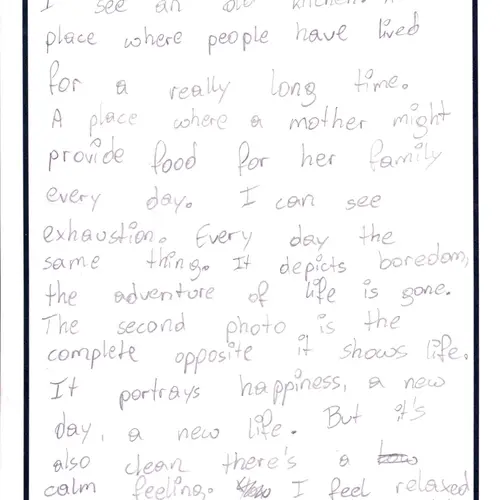 I see an old kitchen. A
place where people have lived
for a really long time.
A place where a mother might
provide food for her family
every day. I can see
exhaustion. Every day the
same thing. It depicts boredom,
the adventure of life is gone.
The second photo is the
complete opposite it shows life.
It portrays happiness, a new
day, a new life. But it's
also clean there's a
calm feeling. I feel relaxed